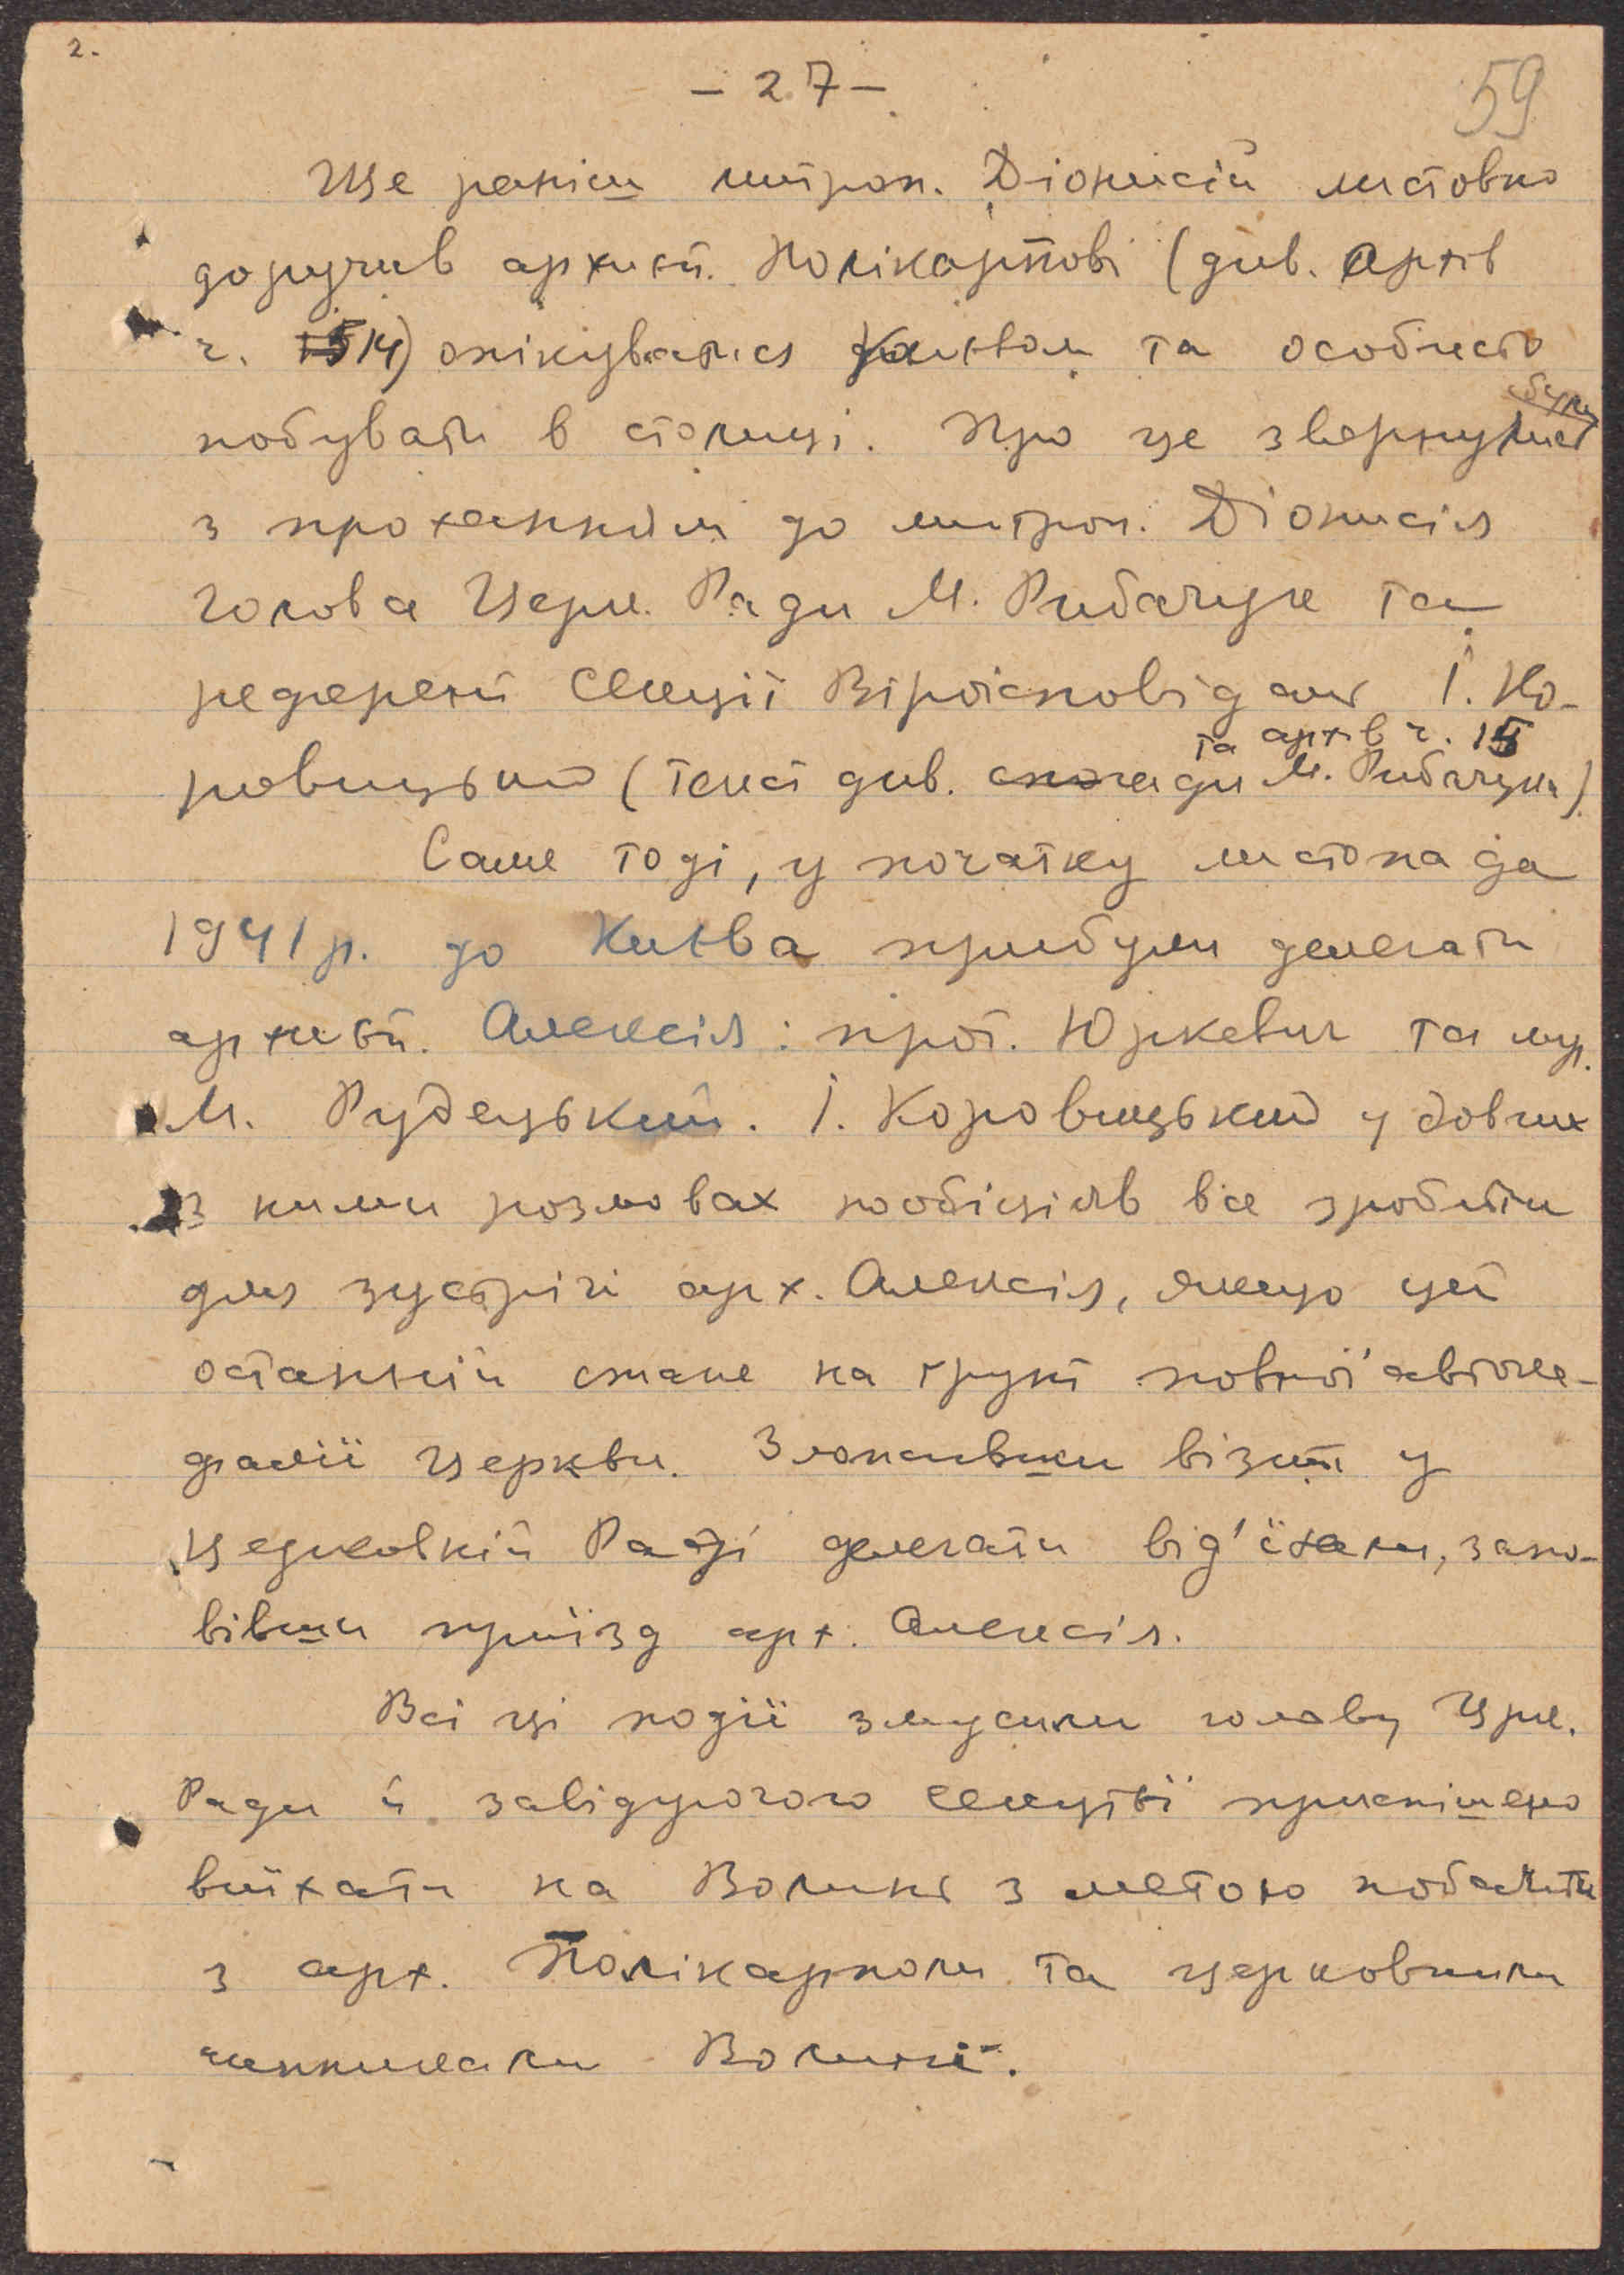 2.
- 27 -
59
Ще раніш митроп. Діонисій листовно
доручив архиєп. Полікарпові (див. Архів
ч. 14) опікуватися Києвом та особисто
побувати в столиці. Про це звернулись
з проханням до митроп. Діонисія
Голова Церк. Ради М. Рибачук та
референт Секції Віроісповідань І. Ко-
та архів ч. 15
ровицький (текст див. спогади М. Рибачука).
Саме тоді, у початку листопада
1941 р. до Києва прибули делегати
архиєп. Алексія: прот. Юркевич та мир.
М. Рудецький. І. Коровицький у довгих
з ними розмовах пообіцяв все зробити
для зустрічі арх. Алексія, якщо цей
останній стане на ґрунт повної автоке-
фалії церкви. Зложивши візит у
Церковній Раді делегати від'їхали, запо-
вівши приїзд арх. Алексія.
Всі ці події змусили голову Црк.
Ради й завідуючого секцією приспішено
виїхати на Волинь з метою побачити
з арх. Полікарпом та церковними
чинниками Волині.